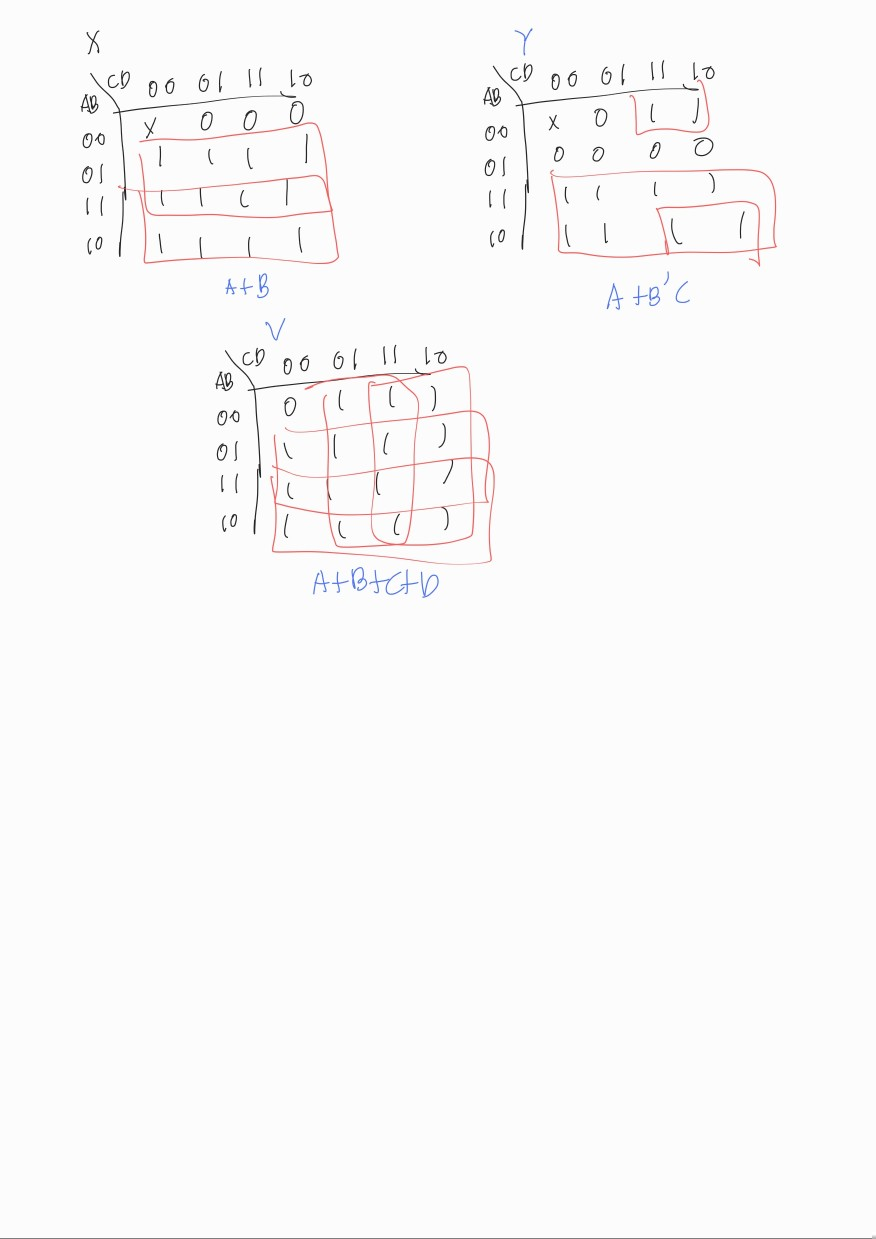 X
CD 00 01 11 10
AB
00 X 0 0 0
01 1 1 1 1
11 1 1 1 1
10 1 1 1 1
A+B
Y
CD 00 01 11 10
AB
00 X 0 1 1
01 0 0 0 0
11 1 1 1 1
10 1 1 1 1
A+B'C
V
CD 00 01 11 10
AB
00 0 1 1 1
01 1 1 1 1
11 1 1 1 1
10 1 1 1 1
A+B+C+D